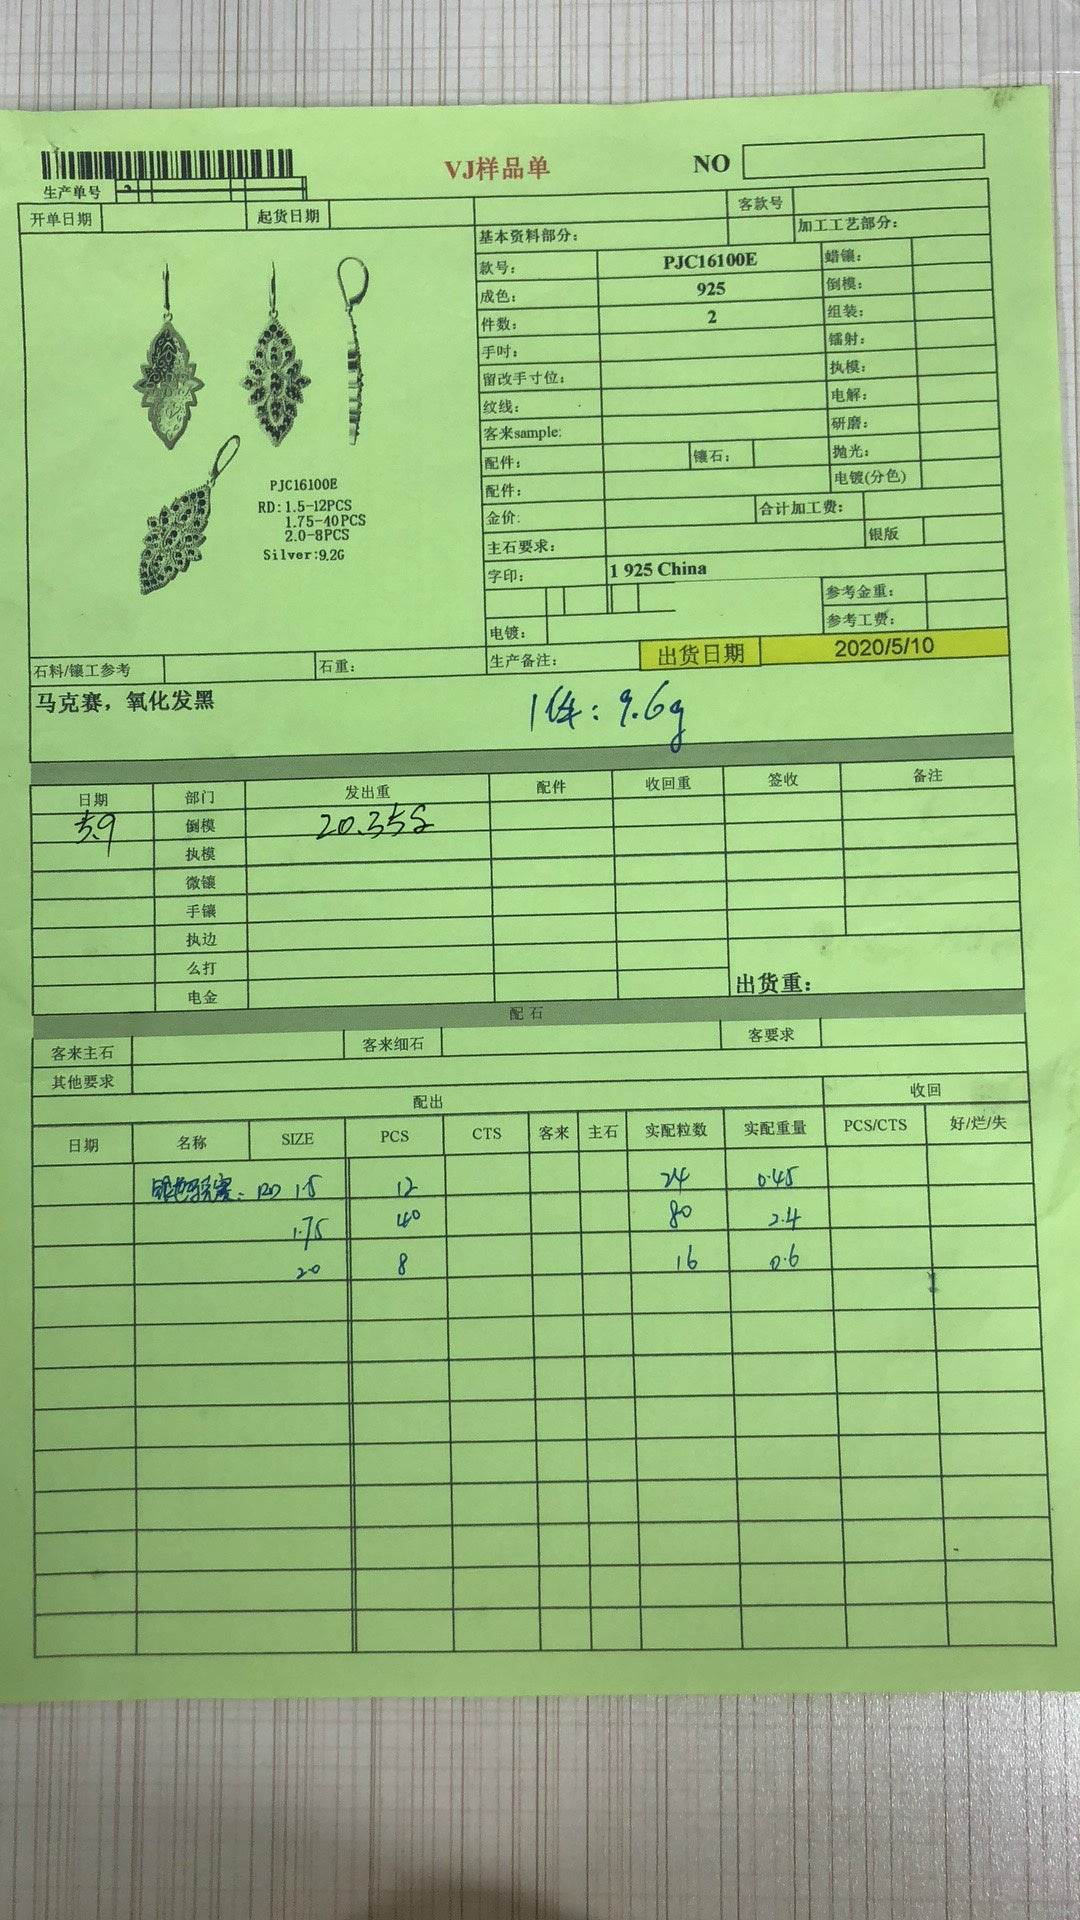 VJ样品单
NO
生产单号
开单日期 起货日期 客款号
基本资料部分: 加工工艺部分:
款号: PJC16100E 蜡镶:
成色: 925 倒模:
件数: 2 组装:
手吋: 镭射:
留改手寸位: 执模:
纹线: 电解:
客来sample: 研磨:
配件: 镶石: 抛光:
配件: 电镀(分色)
金价: 合计加工费:
主石要求: 银版
字印: 1 925 China
参考金重:
参考工费:
电镀:
PJC16100E
RD:1.5-12PCS
1.75-40PCS
2.0-8PCS
Silver:9.2G
石料/镶工参考 石重: 生产备注: 出货日期 2020/5/10
马克赛，氧化发黑
1件: 9.6g
日期 部门 发出重 配件 收回重 签收 备注
5.9 倒模 20.35g
执模
微镶
手镶
执边
么打
电金 出货重:
配石
客来主石 客来细石 客要求
其他要求
配出 收回
日期 名称 SIZE PCS CTS 客来 主石 实配粒数 实配重量 PCS/CTS 好/烂/失
RD 1.5 12 24 0.45
1.75 40 80 2.4
2.0 8 16 0.6